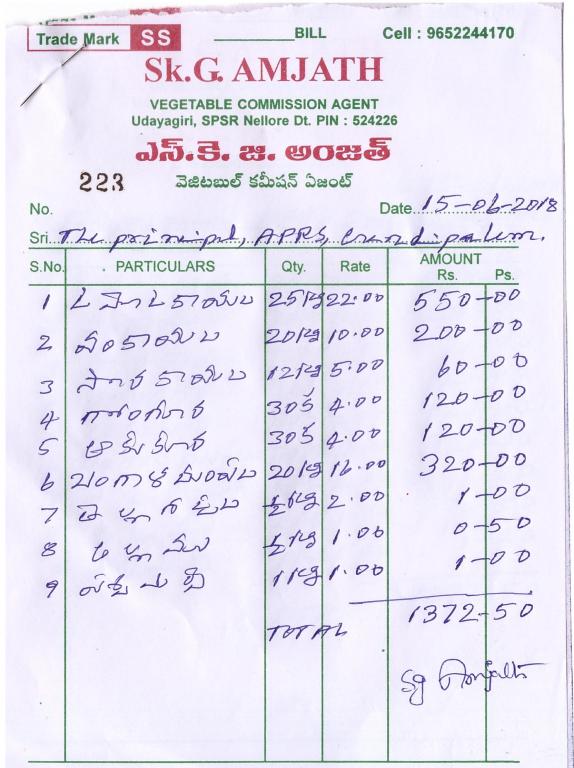 Trade Mark SS BILL Cell : 9652244170
Sk.G. AMJATH
VEGETABLE COMMISSION AGENT
Udayagiri, SPSR Nellore Dt. PIN : 524226
ఎస్.కె. జి. అంజత్
223 వెజిటబుల్ కమీషన్ ఏజంట్
No. Date 15-06-2018
Sri The principal, APRS,
S.No. PARTICULARS Qty. Rate AMOUNT
Rs. Ps.
1 టమాటకాయలు 25kg 22.00 550-00
2 వంకాయలు 20kg 10.00 200-00
3 సొరకాయలు 12kg 5.00 60-00
4 గోంగూర 30క 4.00 120-00
5 ఆకుకూర 30క 4.00 120-00
6 20kg 16.00 320-00
7 ½kg 2.00 1-00
8 ½kg 1.00 0-50
9 1kg 1.00 1-00
TOTAL 1372-50
Sg Amjath